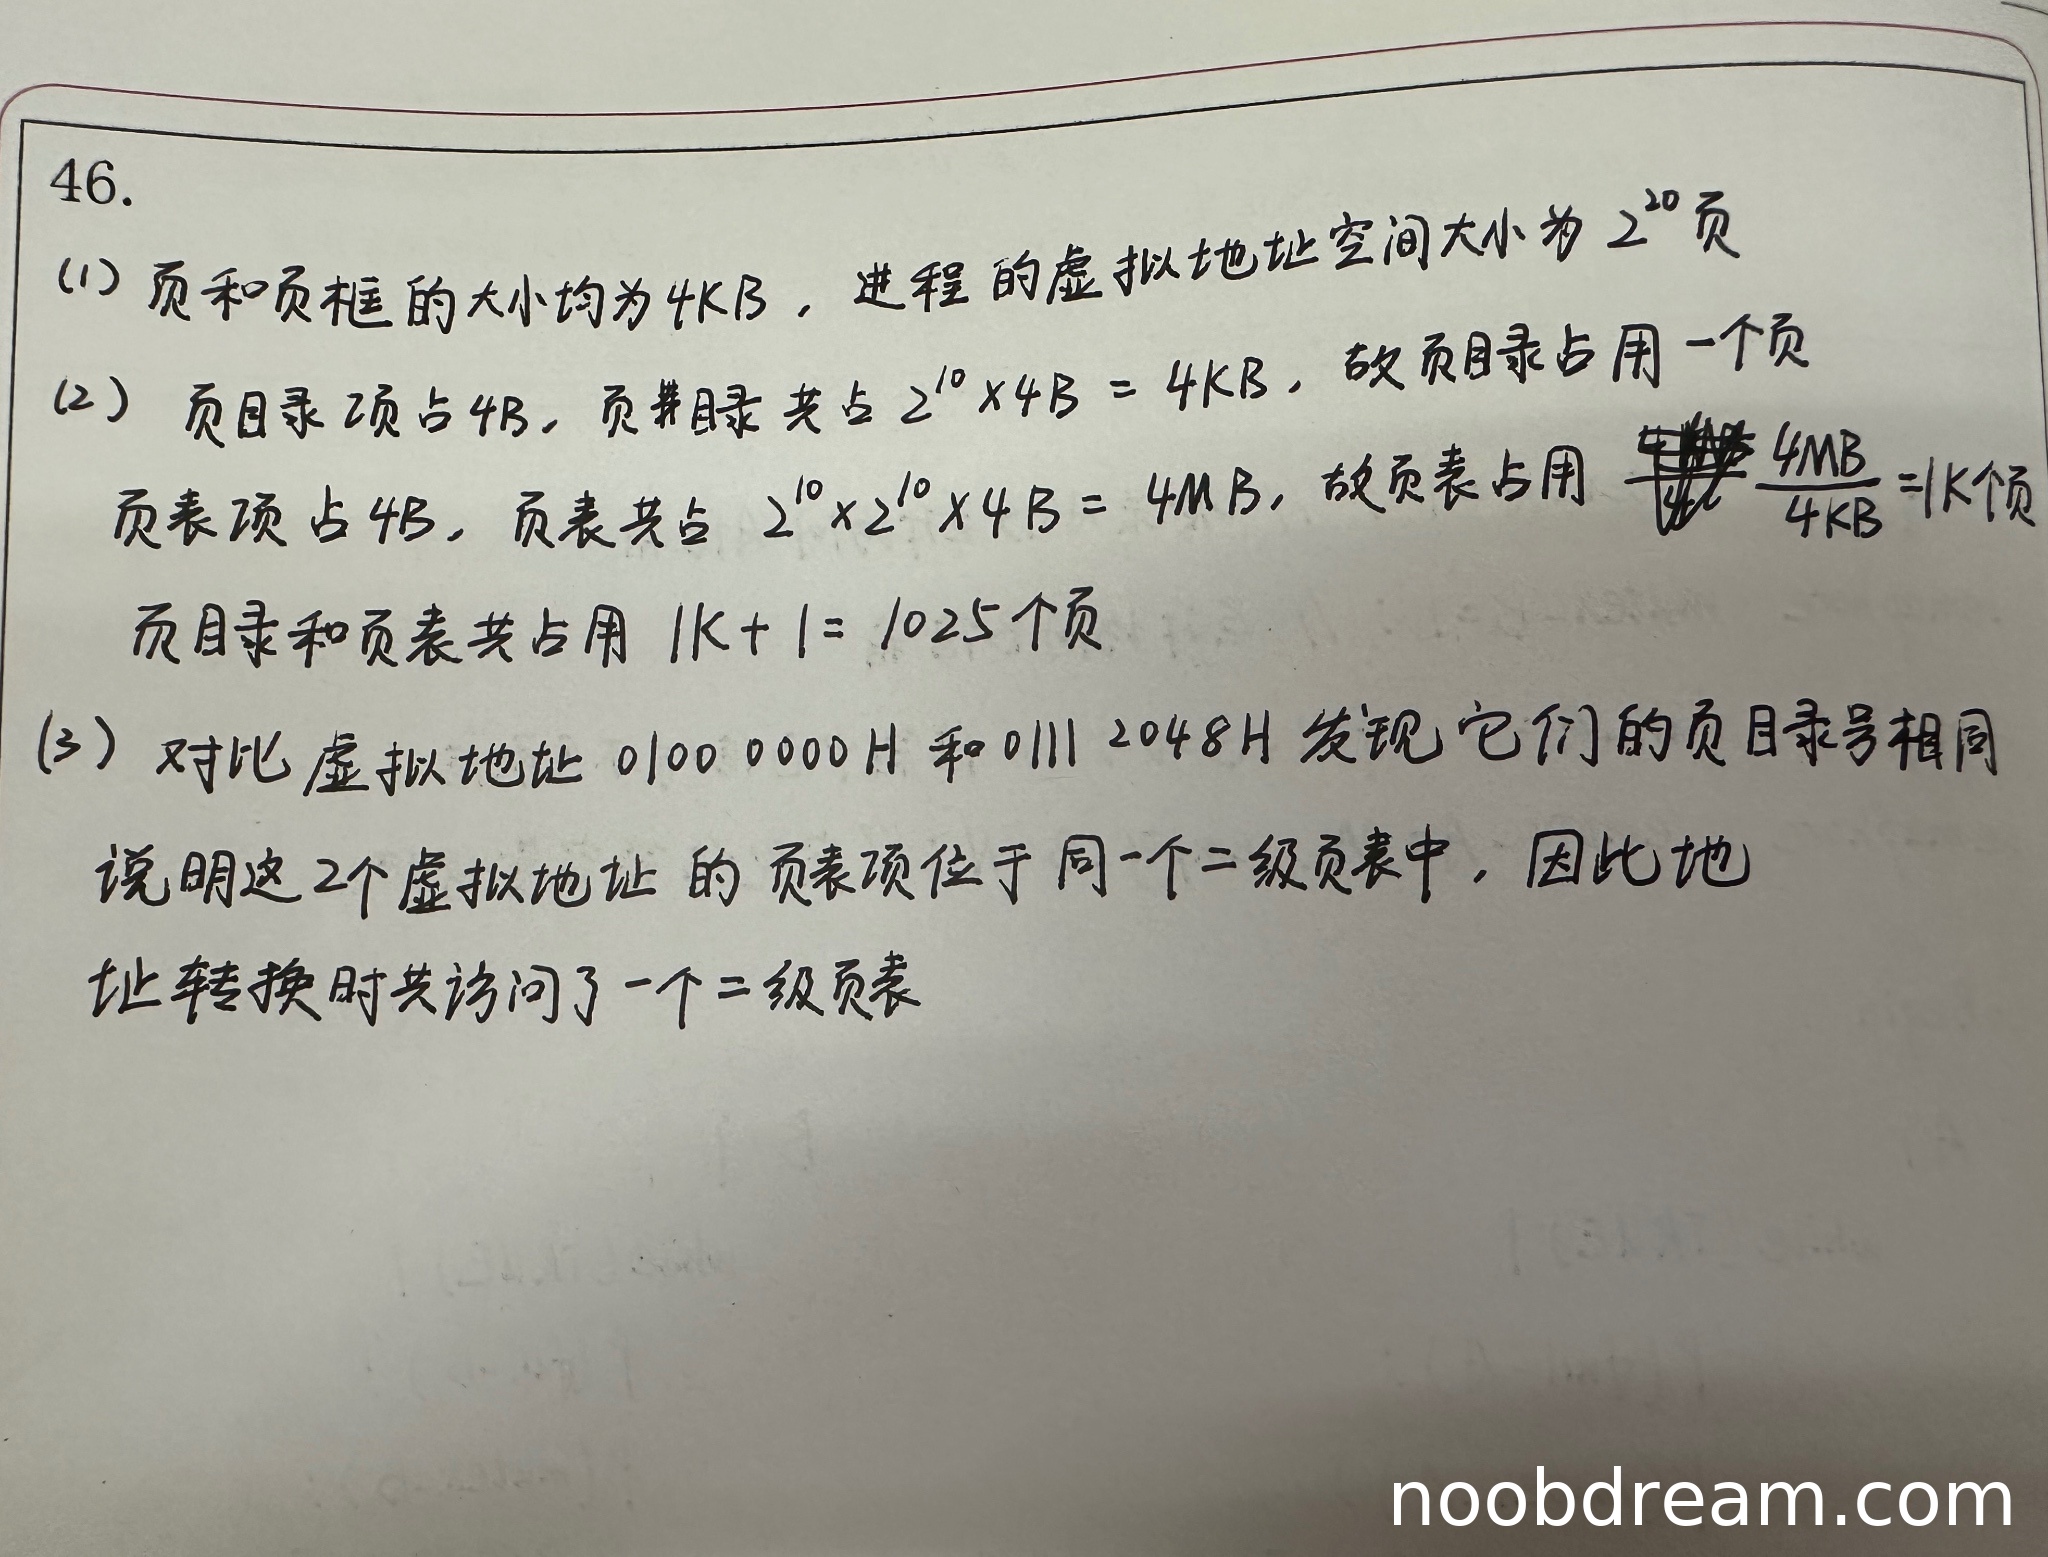 46.
(1) 页和页框的大小均为4KB，进程的虚拟地址空间大小为 2^20 页
(2) 页目录项占4B，页目录共占 2^10×4B = 4KB，故页目录占用一个页
页表项占4B，页表共占 2^10×2^10×4B = 4MB，故页表占用 4MB/4KB=1K个页
页目录和页表共占用 1K+1= 1025个页
(3) 对比虚拟地址 0100 0000H 和 0111 2048H 发现它们的页目录号相同
说明这2个虚拟地址的页表项位于同一个二级页表中，因此地
址转换时共访问了一个二级页表
noobdream.com